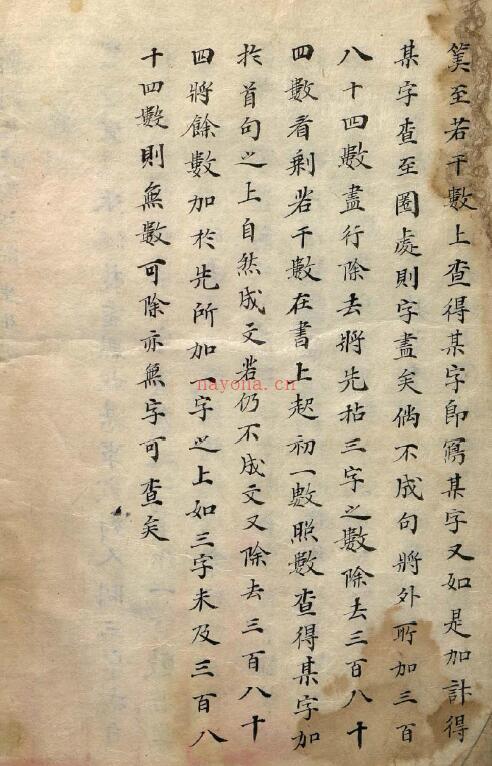 筭至若干數上查得某字即寫某字又如是加計得
某字查至圈處則字盡矣倘不成句將外所加三百
八十四數盡行除去將先拈三字之數除去三百八十
四數看剩若干數在書上起初一數照數查得某字加
扵首句之上自然成文若仍不成文又除去三百八十
四將餘數加扵先所加一字之上如三字未及三百八
十四數則無數可除亦無字可查矣
nayona.cn